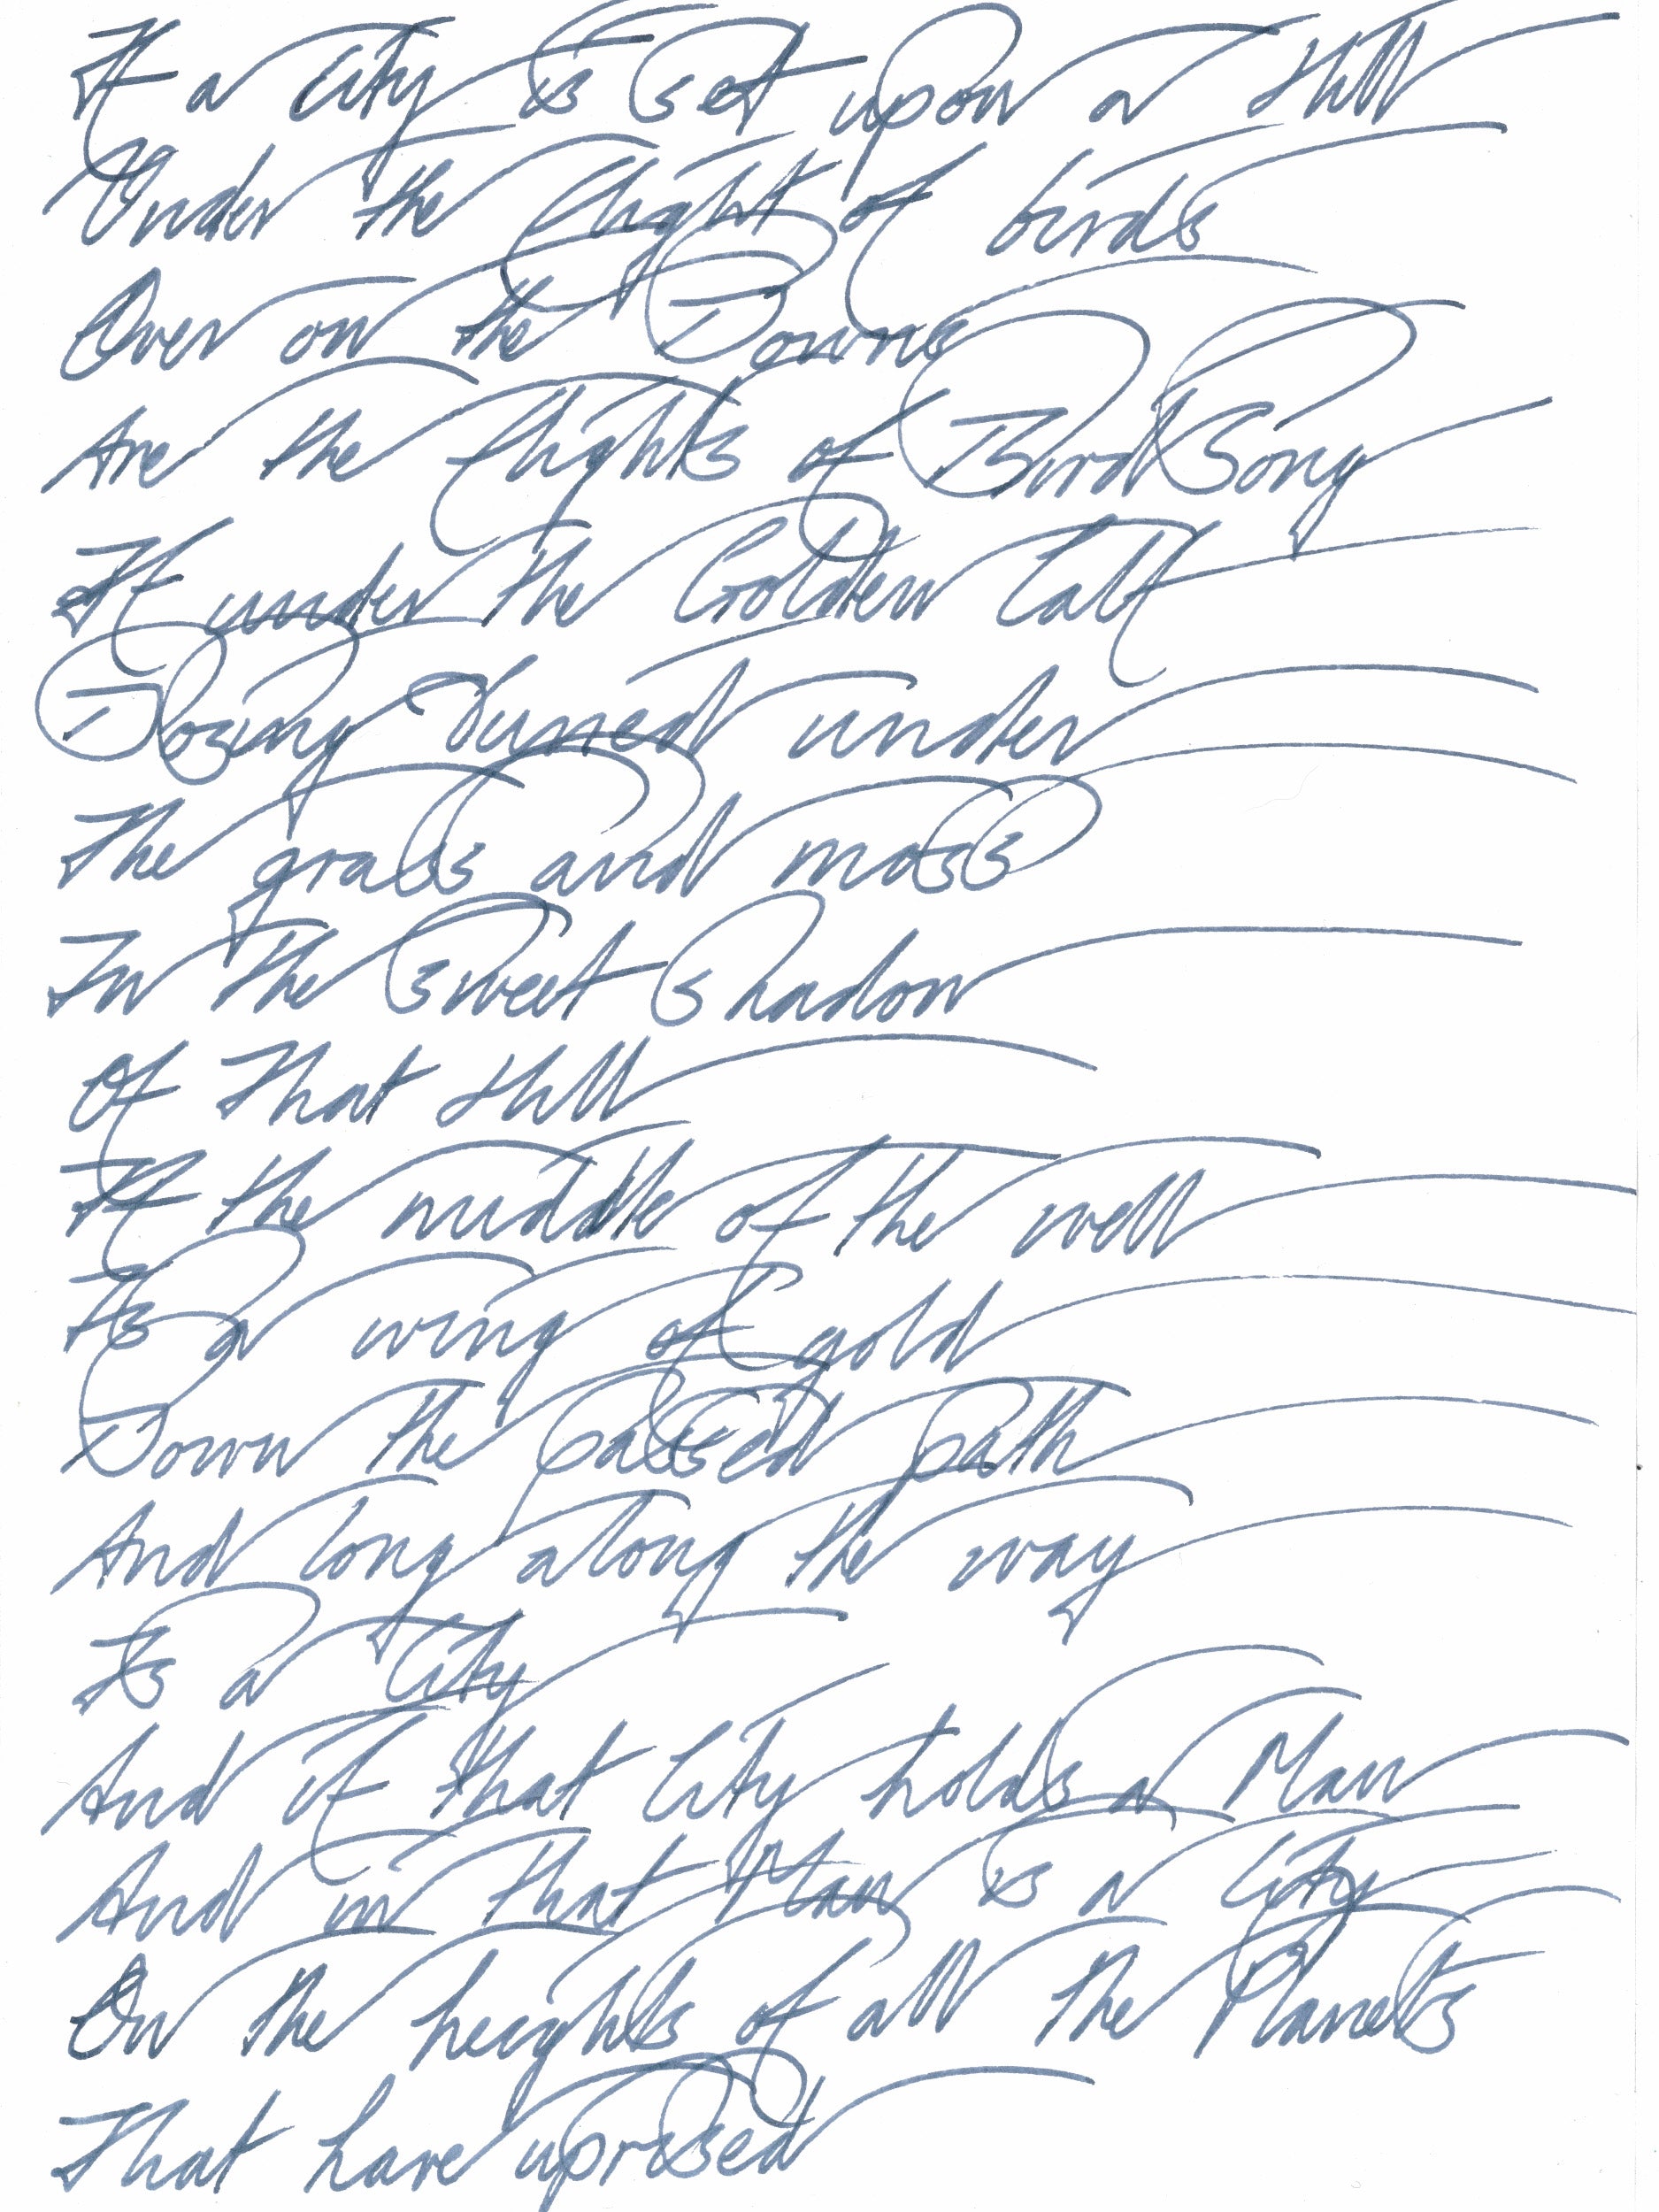 If a City is Set upon a Hill
Under the flight of birds
Over on the Downs
Are the flights of Bird Song
If under the Golden Calf
Dozing buried under
The grass and moss
In the Sweet Shadow
Of That Hill
If the middle of the well
Is a wing of gold
Down the passed path
And long along the way
Is a City
And if that City holds a Man
And in that Man is a City
On the heights of all the Planets
That have uprised